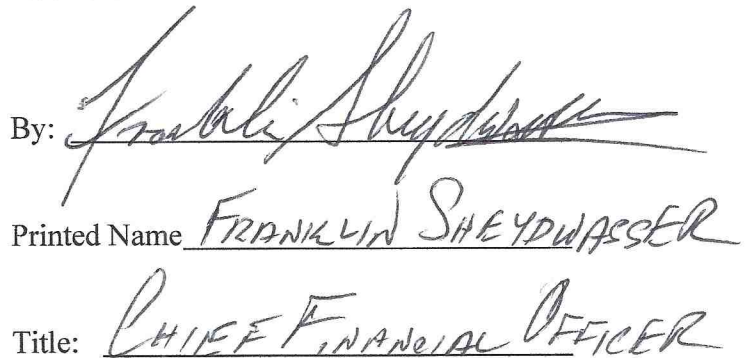 By: Franklin Sheydwasser
Printed Name FRANKLIN SHEYDWASSER
Title: CHIEF FINANCIAL OFFICER